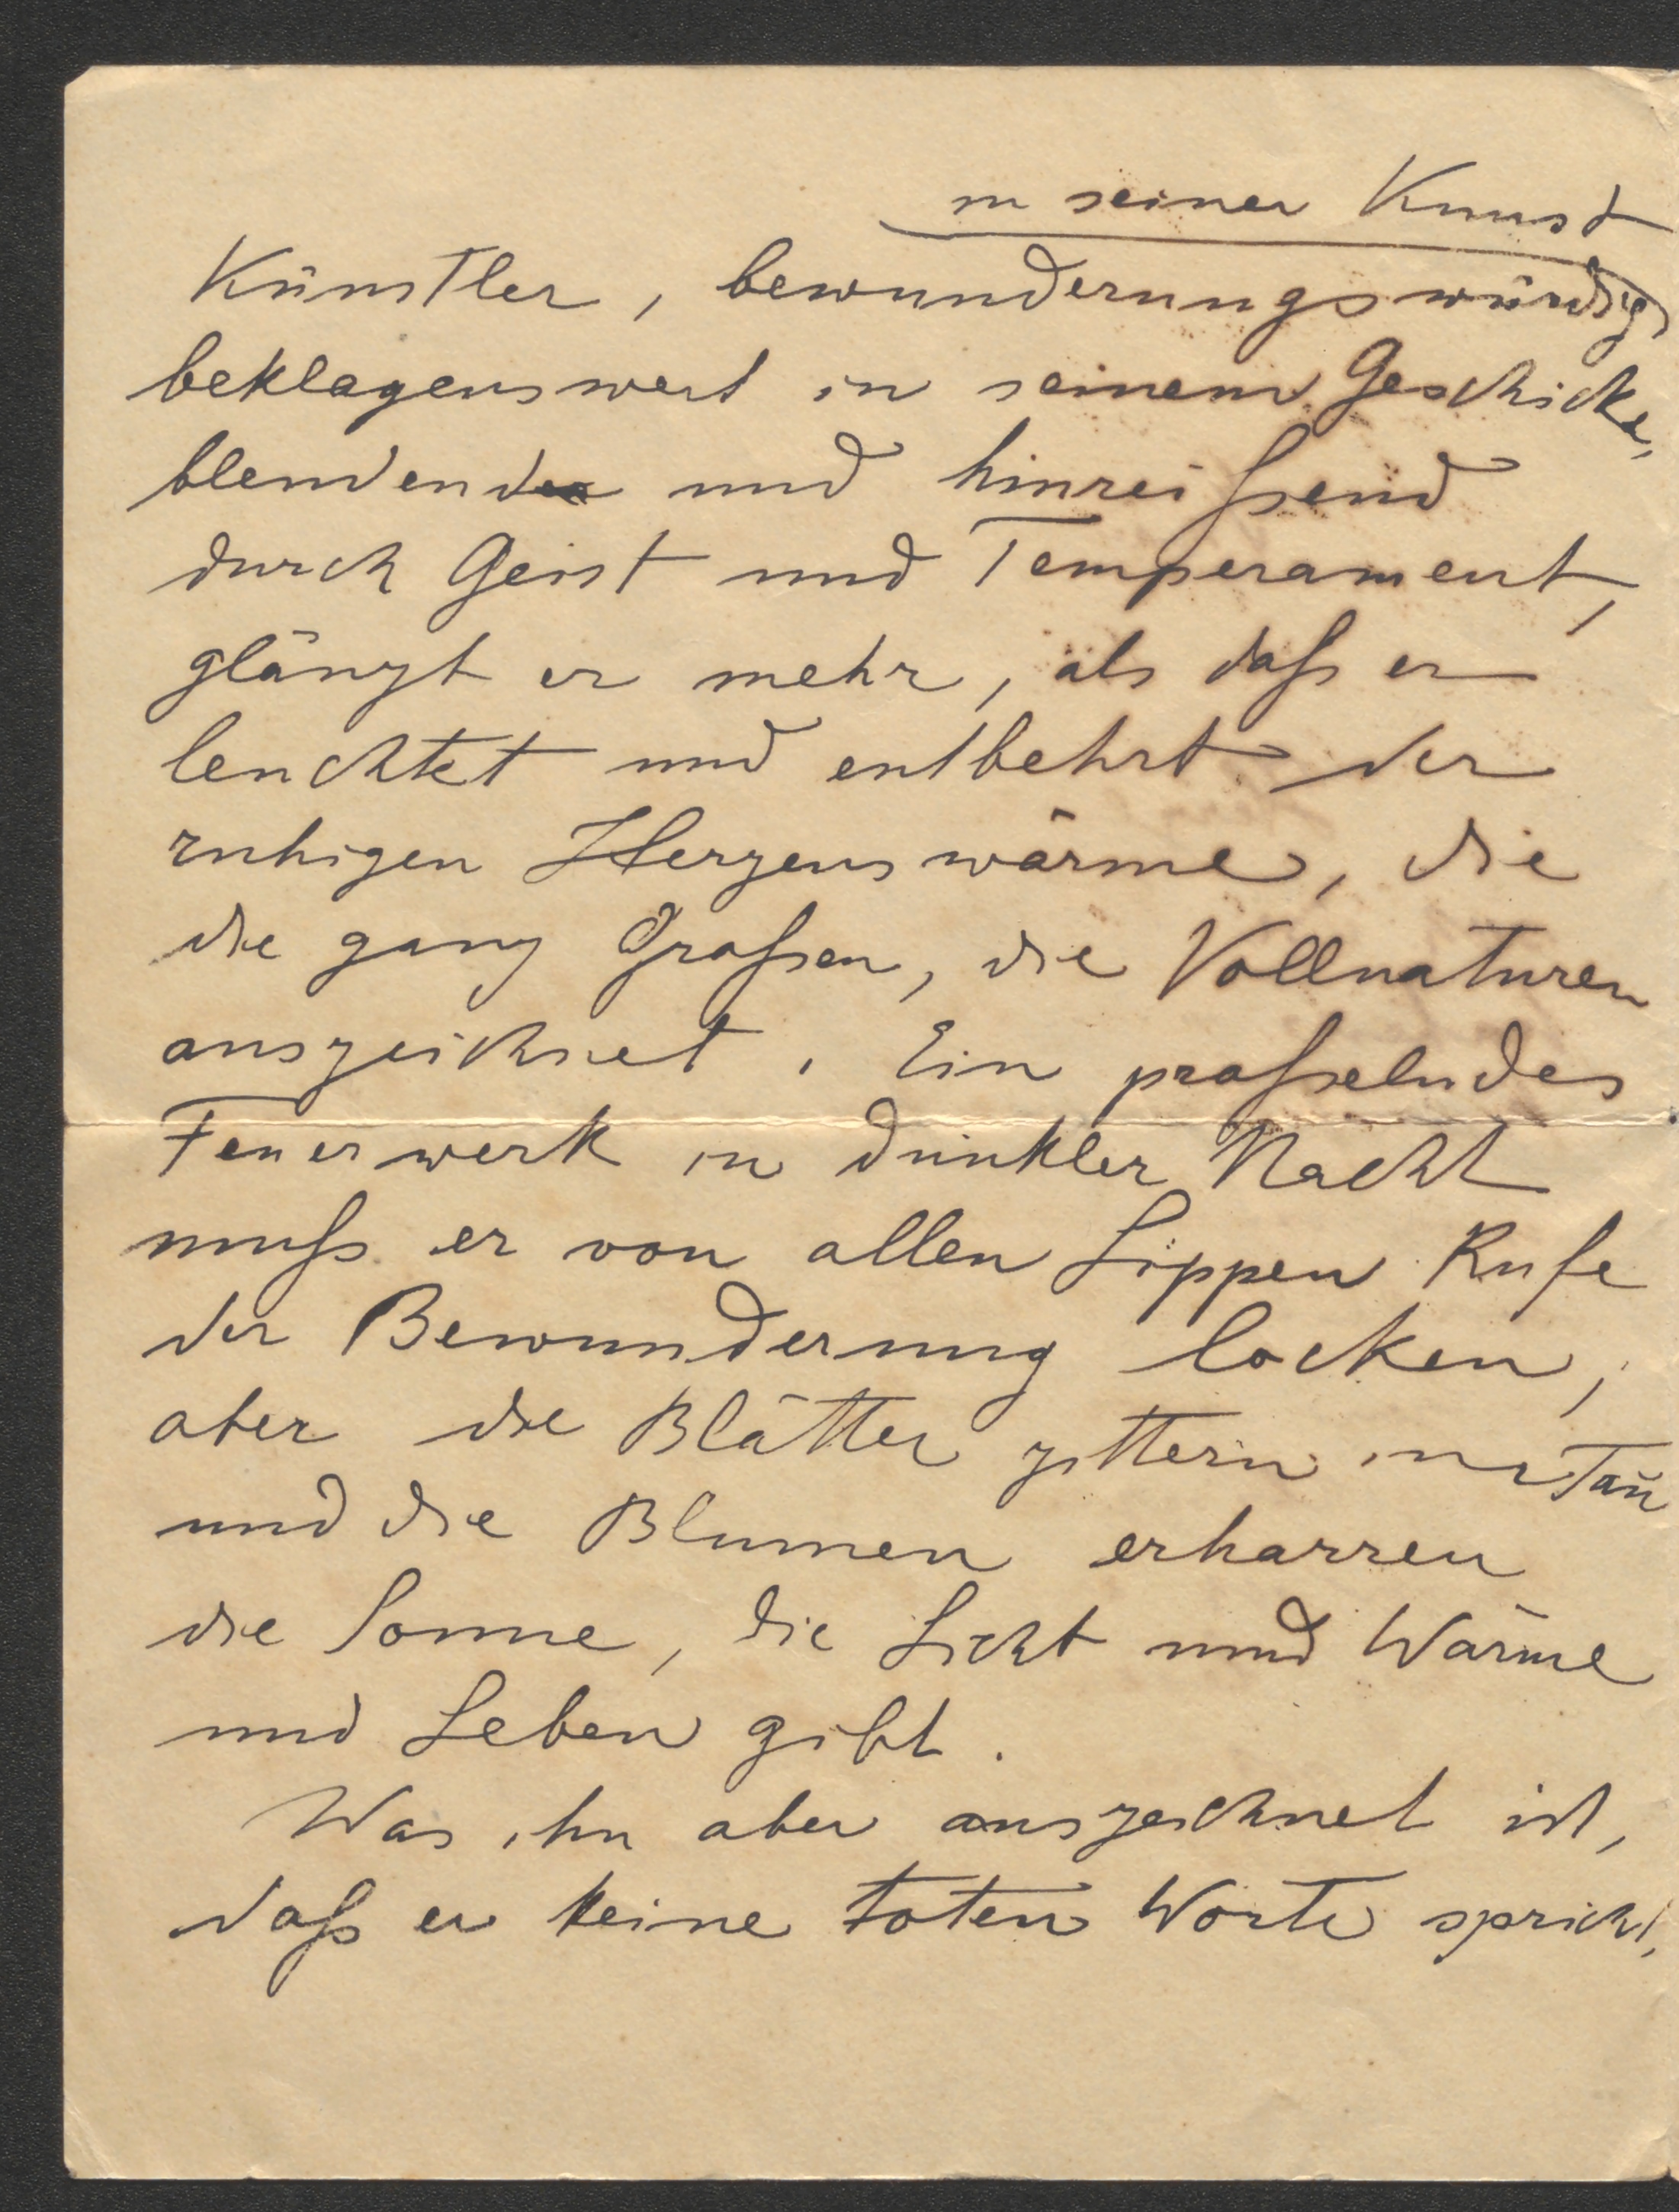 in seiner Kunst
Künstler, bewunderungswürdig
beklagenswert in seinem Geschicke,
blendend und hinreißend
durch Geist und Temperament,
glänzt er mehr, als daß er
leuchtet und entbehrt der
ruhigen Herzenswärme, die
die ganz Großen, die Vollnaturen
auszeichnet. Ein prasselndes
Feuerwerk in dunkler Nacht
muß er von allen Lippen Rufe
der Bewunderung locken,
aber die Blätter zittern im Tau
und die Blumen erharren
die Sonne, die Licht und Wärme
und Leben gibt.
Was ihn aber auszeichnet ist,
daß er keine toten Worte spricht,